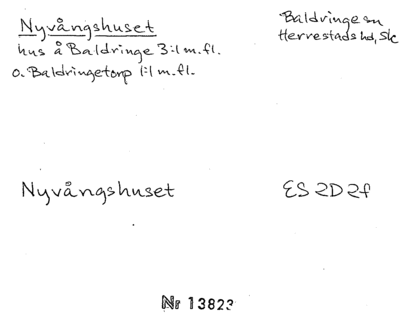 Nyvångshuset
hus å Baldringe 3:1 m.fl.
o. Baldringetorp 1:1 m.fl.
Baldringe sn
Herrestads hd, Sk
Nyvångshuset
ES 2D 2f
Nr 13823